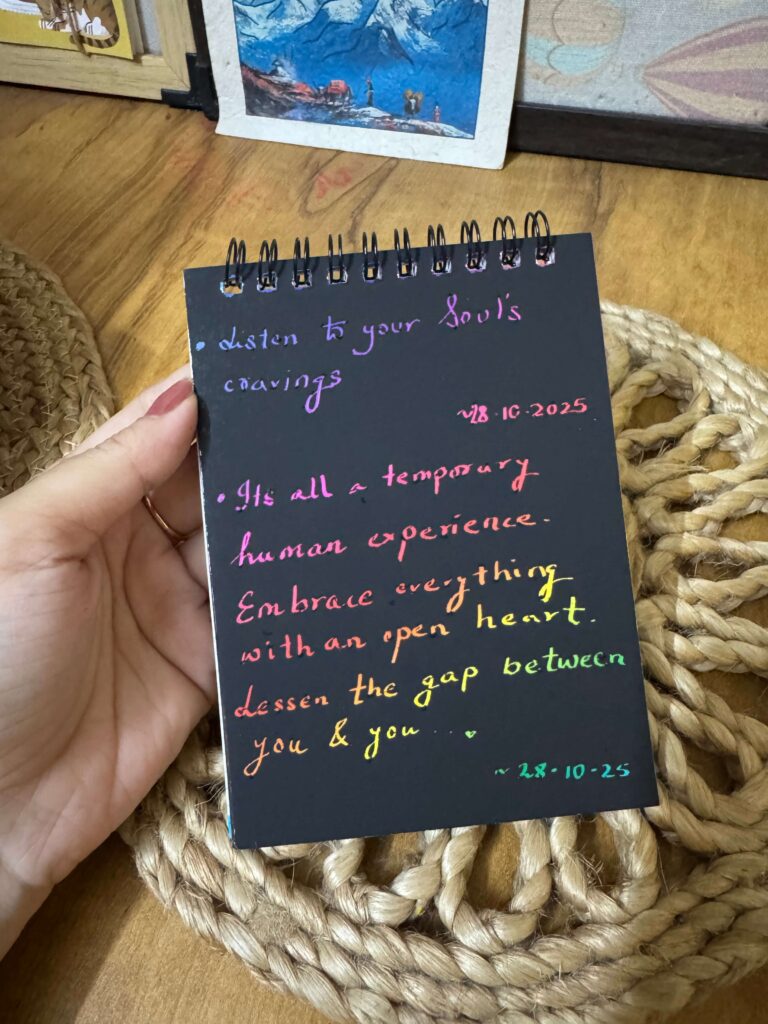 • Listen to your Soul's
cravings
~28.10.2025
• Its all a temporary
human experience.
Embrace everything
with an open heart.
Lessen the gap between
you & you ...
~ 28-10-25